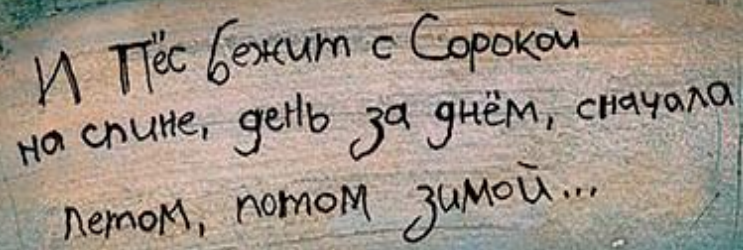 И Пёс бежит с Сорокой
на спине, день за днём, сначала
летом, потом зимой...